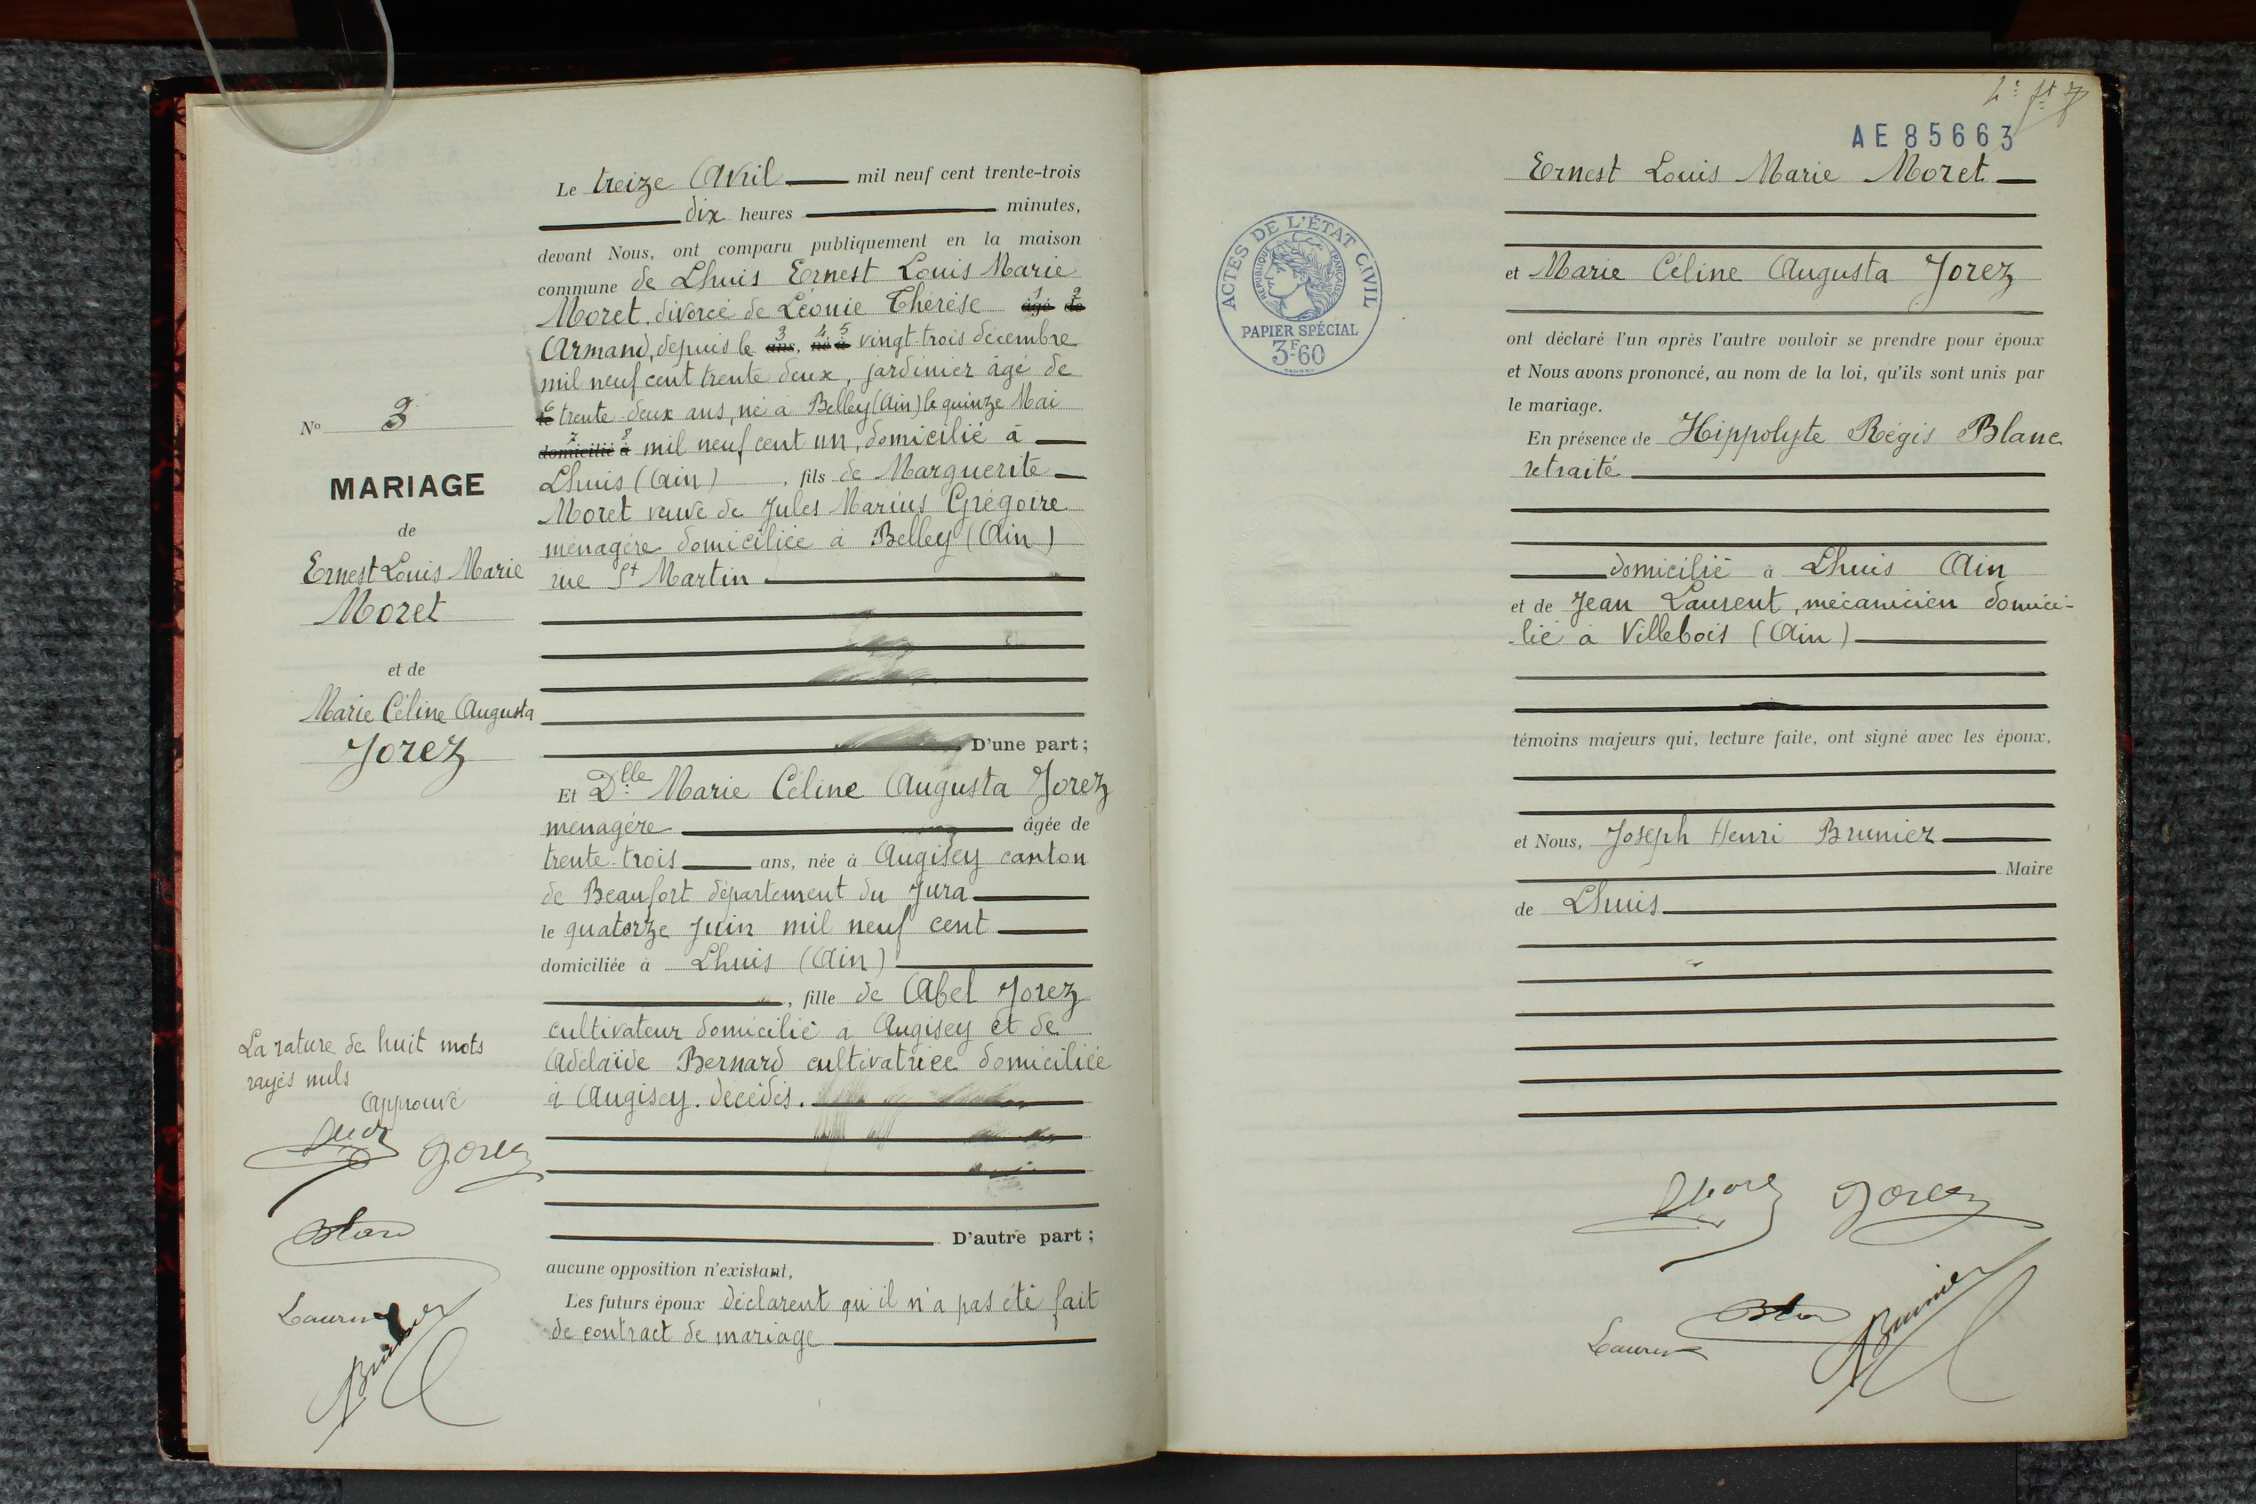 Le treize Avril mil neuf cent trente-trois
dix heures minutes,
devant Nous, ont comparu publiquement en la maison
commune de Lhuis Ernest Louis Marie
Moret, divorcé de Léonie Thérèse âgé 1 de 2
Armand, depuis le ans, 3 né 4 à 5 vingt-trois décembre
mil neuf cent trente deux, jardinier âgé de
le 6 trente-deux ans, né à Belley (Ain) le quinze Mai
domicilié 7 à 8 mil neuf cent un, domicilié à
Lhuis (Ain), fils de Marguerite
Moret veuve de Jules Marius Grégoire
ménagère domiciliée à Belley (Ain)
rue St Martin
D'une part;
Et Dlle Marie Céline Augusta Jorez
ménagère âgée de
trente-trois ans, née à Augisey canton
de Beaufort département du Jura
le quatorze Juin mil neuf cent
domiciliée à Lhuis (Ain)
, fille de Abel Jorez
cultivateur domicilié à Augisey et de
Adélaïde Bernard cultivatrice domiciliée
à Augisey. décédés.
D'autre part;
aucune opposition n'existant,
Les futurs époux déclarent qu'il n'a pas été fait
de contract de mariage
No 3
MARIAGE
de
Ernest Louis Marie
Moret
et de
Marie Céline Augusta
Jorez
La rature de huit mots
rayés nuls
Approuvé
Jorez
Blanc
Laurent
Brunier
AE 85663
ACTES DE L'ÉTAT CIVIL
RÉPUBLIQUE FRANÇAISE
PAPIER SPÉCIAL
3F60
Ernest Louis Marie Moret
et Marie Céline Augusta Jorez
ont déclaré l'un après l'autre vouloir se prendre pour époux
et Nous avons prononcé, au nom de la loi, qu'ils sont unis par
le mariage.
En présence de Hippolyte Régis Blanc
retraité
domicilié à Lhuis Ain
et de Jean Laurent, mécanicien domici-
-lié à Villebois (Ain)
témoins majeurs qui, lecture faite, ont signé avec les époux,
et Nous, Joseph Henri Brunier
Maire
de Lhuis
Moret Jorez
Blanc
Laurent Brunier